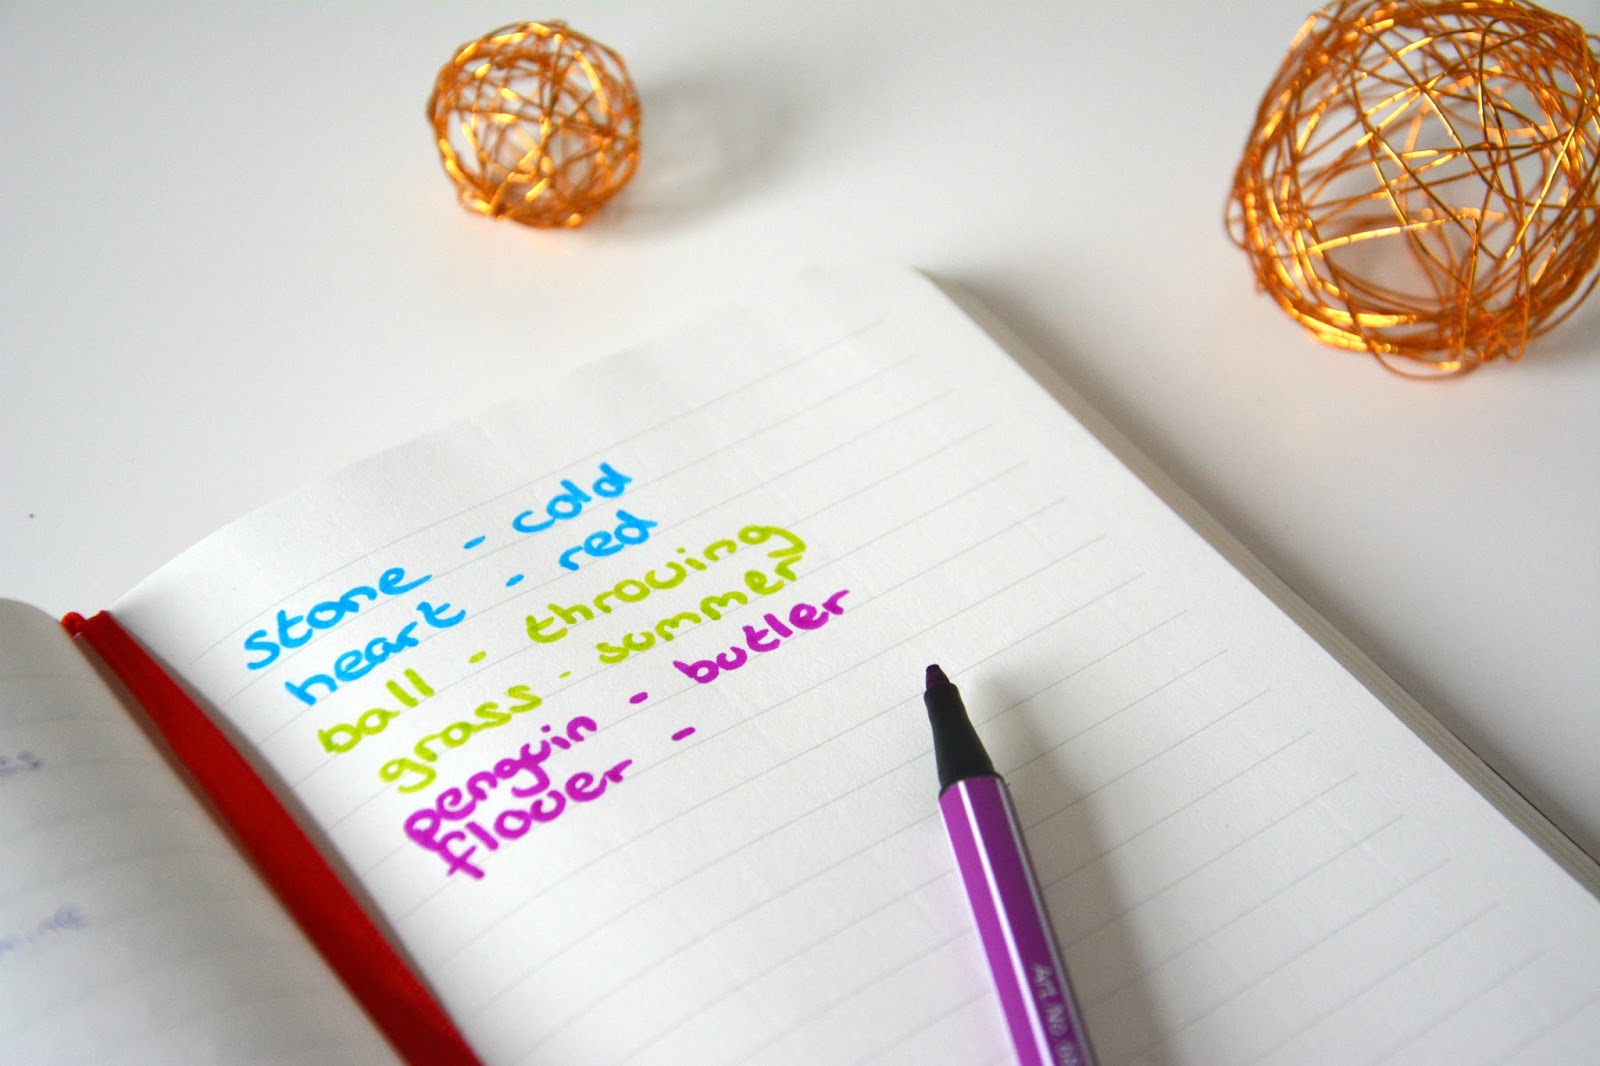 stone - cold
heart - red
ball - throwing
grass - summer
penguin - butler
flower -